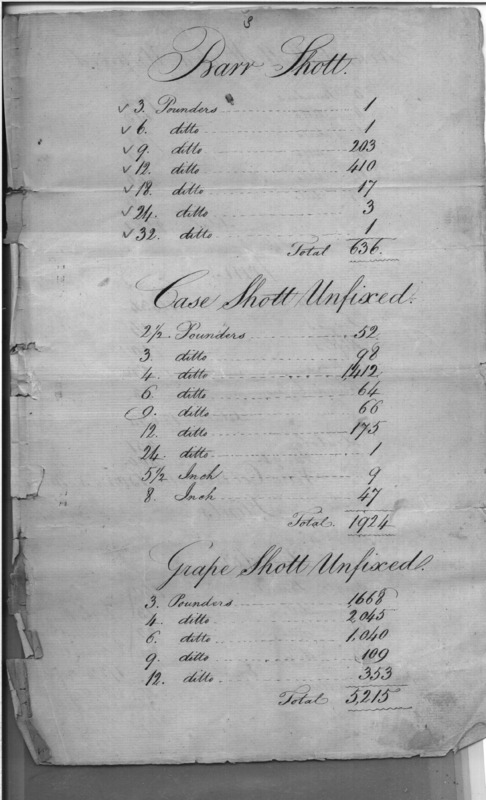 8
Barr Shott.
✓ 3. Pounders 1
✓ 6. ditto 1
✓ 9. ditto 203
✓ 12. ditto 410
✓ 18. ditto 17
✓ 24. ditto 3
✓ 32. ditto 1
Total 636.
Case Shott Unfixed.
2½ Pounders 52
3. ditto 98
4. ditto 1,412
6. ditto 64
9. ditto 66
12. ditto 175
24. ditto 1
5½ Inch 9
8. Inch 47
Total 1924
Grape Shott Unfixed.
3. Pounders 1,668
4. ditto 2,045
6. ditto 1,040
9. ditto 109
12. ditto 353
Total 5,215